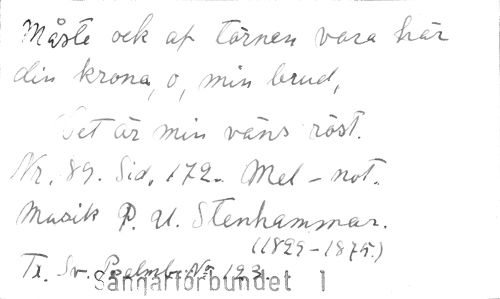 Måste ock af törnen vara här
din krona, o, min brud,
Det är min väns röst.
Nr. 89. Sid. 172. Mel-not.
Musik P. U. Stenhammar.
(1829-1875.)
Tr. Sv. Psalmb. No 123.
Sångarförbundet 1